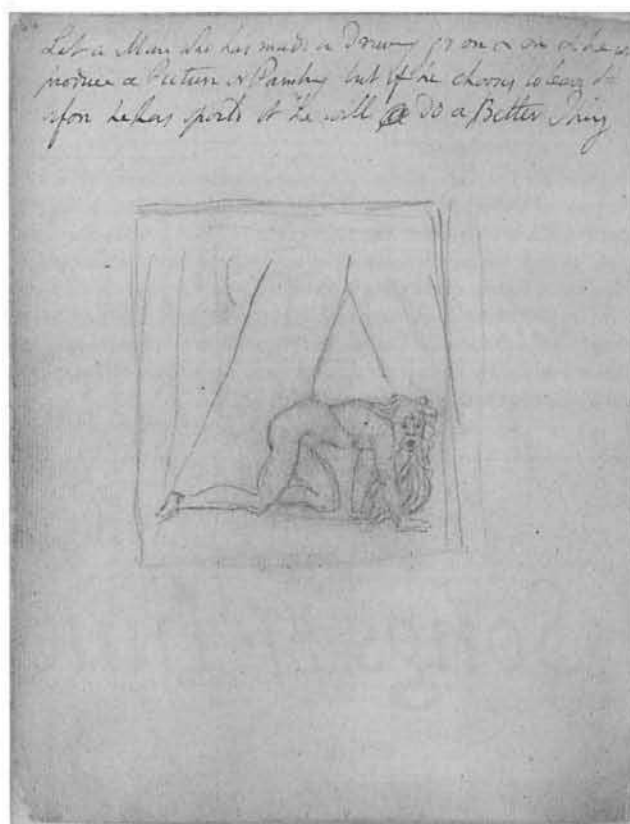 Let a Man who has made a Drawing go on & on & he
produce a Picture or Painting but if he chooses to leave
before he has spoild it he will do a Better Thing